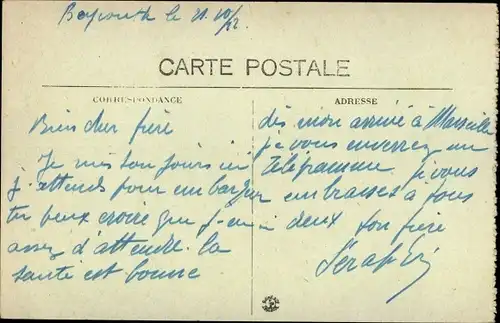 Beyrouth le 21.10/22
CARTE POSTALE
CORRESPONDANCE
Bien cher frère
Je suis toujours ici
j'attends pour embarquer
tu peux croire que j'en ai
assez d'attendre. la
santé est bonne
ADRESSE
dès mon arrivé à Marseille
je vous enverrez un
Télégramme. je vous
embrasses à tous
deux ton frère